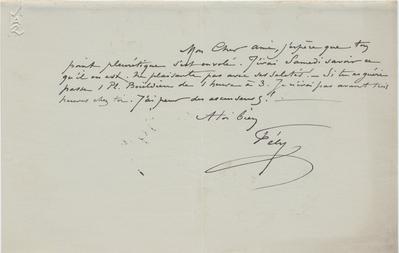 Mon Cher ami, j'espère que ton
point pleurétique s'est envolé. J'irai Samedi savoir ce
qu'il en est. Ne plaisante pas avec ces saletés. — Si tu
passe Pl. de 1 heure à 3. Je n'irai pas avant trois
heures chez toi. J'ai peur des ascenseurs!
A toi bien
Fély